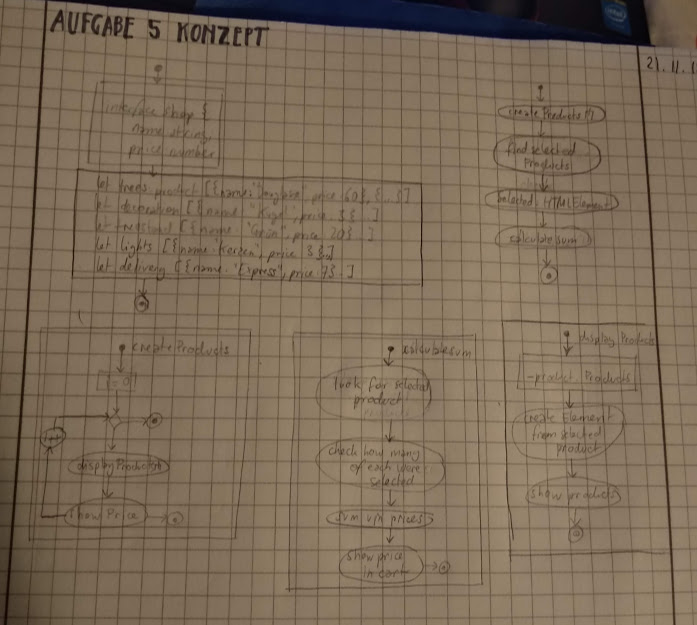 AUFGABE 5 KONZEPT
21.11.
interface Shop {
name: string;
price: number
let trees: product [{name: " ", price: 60}, {...}]
let decoration [{name: "Kugel", price: 3}...]
let treestand [{name: "Grün", price: 20}...]
let lights [{name: "Kerzen", price 3}...]
let delivery [{name: "Express", price: 7}...]
createProducts()
find selected
Products
selected: HTMLElement
calculate sum
createProducts
i = 0
display Products
show Price
calculate sum
look for selected
product
check how many
of each were
selected
sum up prices
show price
in cart
display Products
- product: Products
create Element
from selected
product
show products
intel